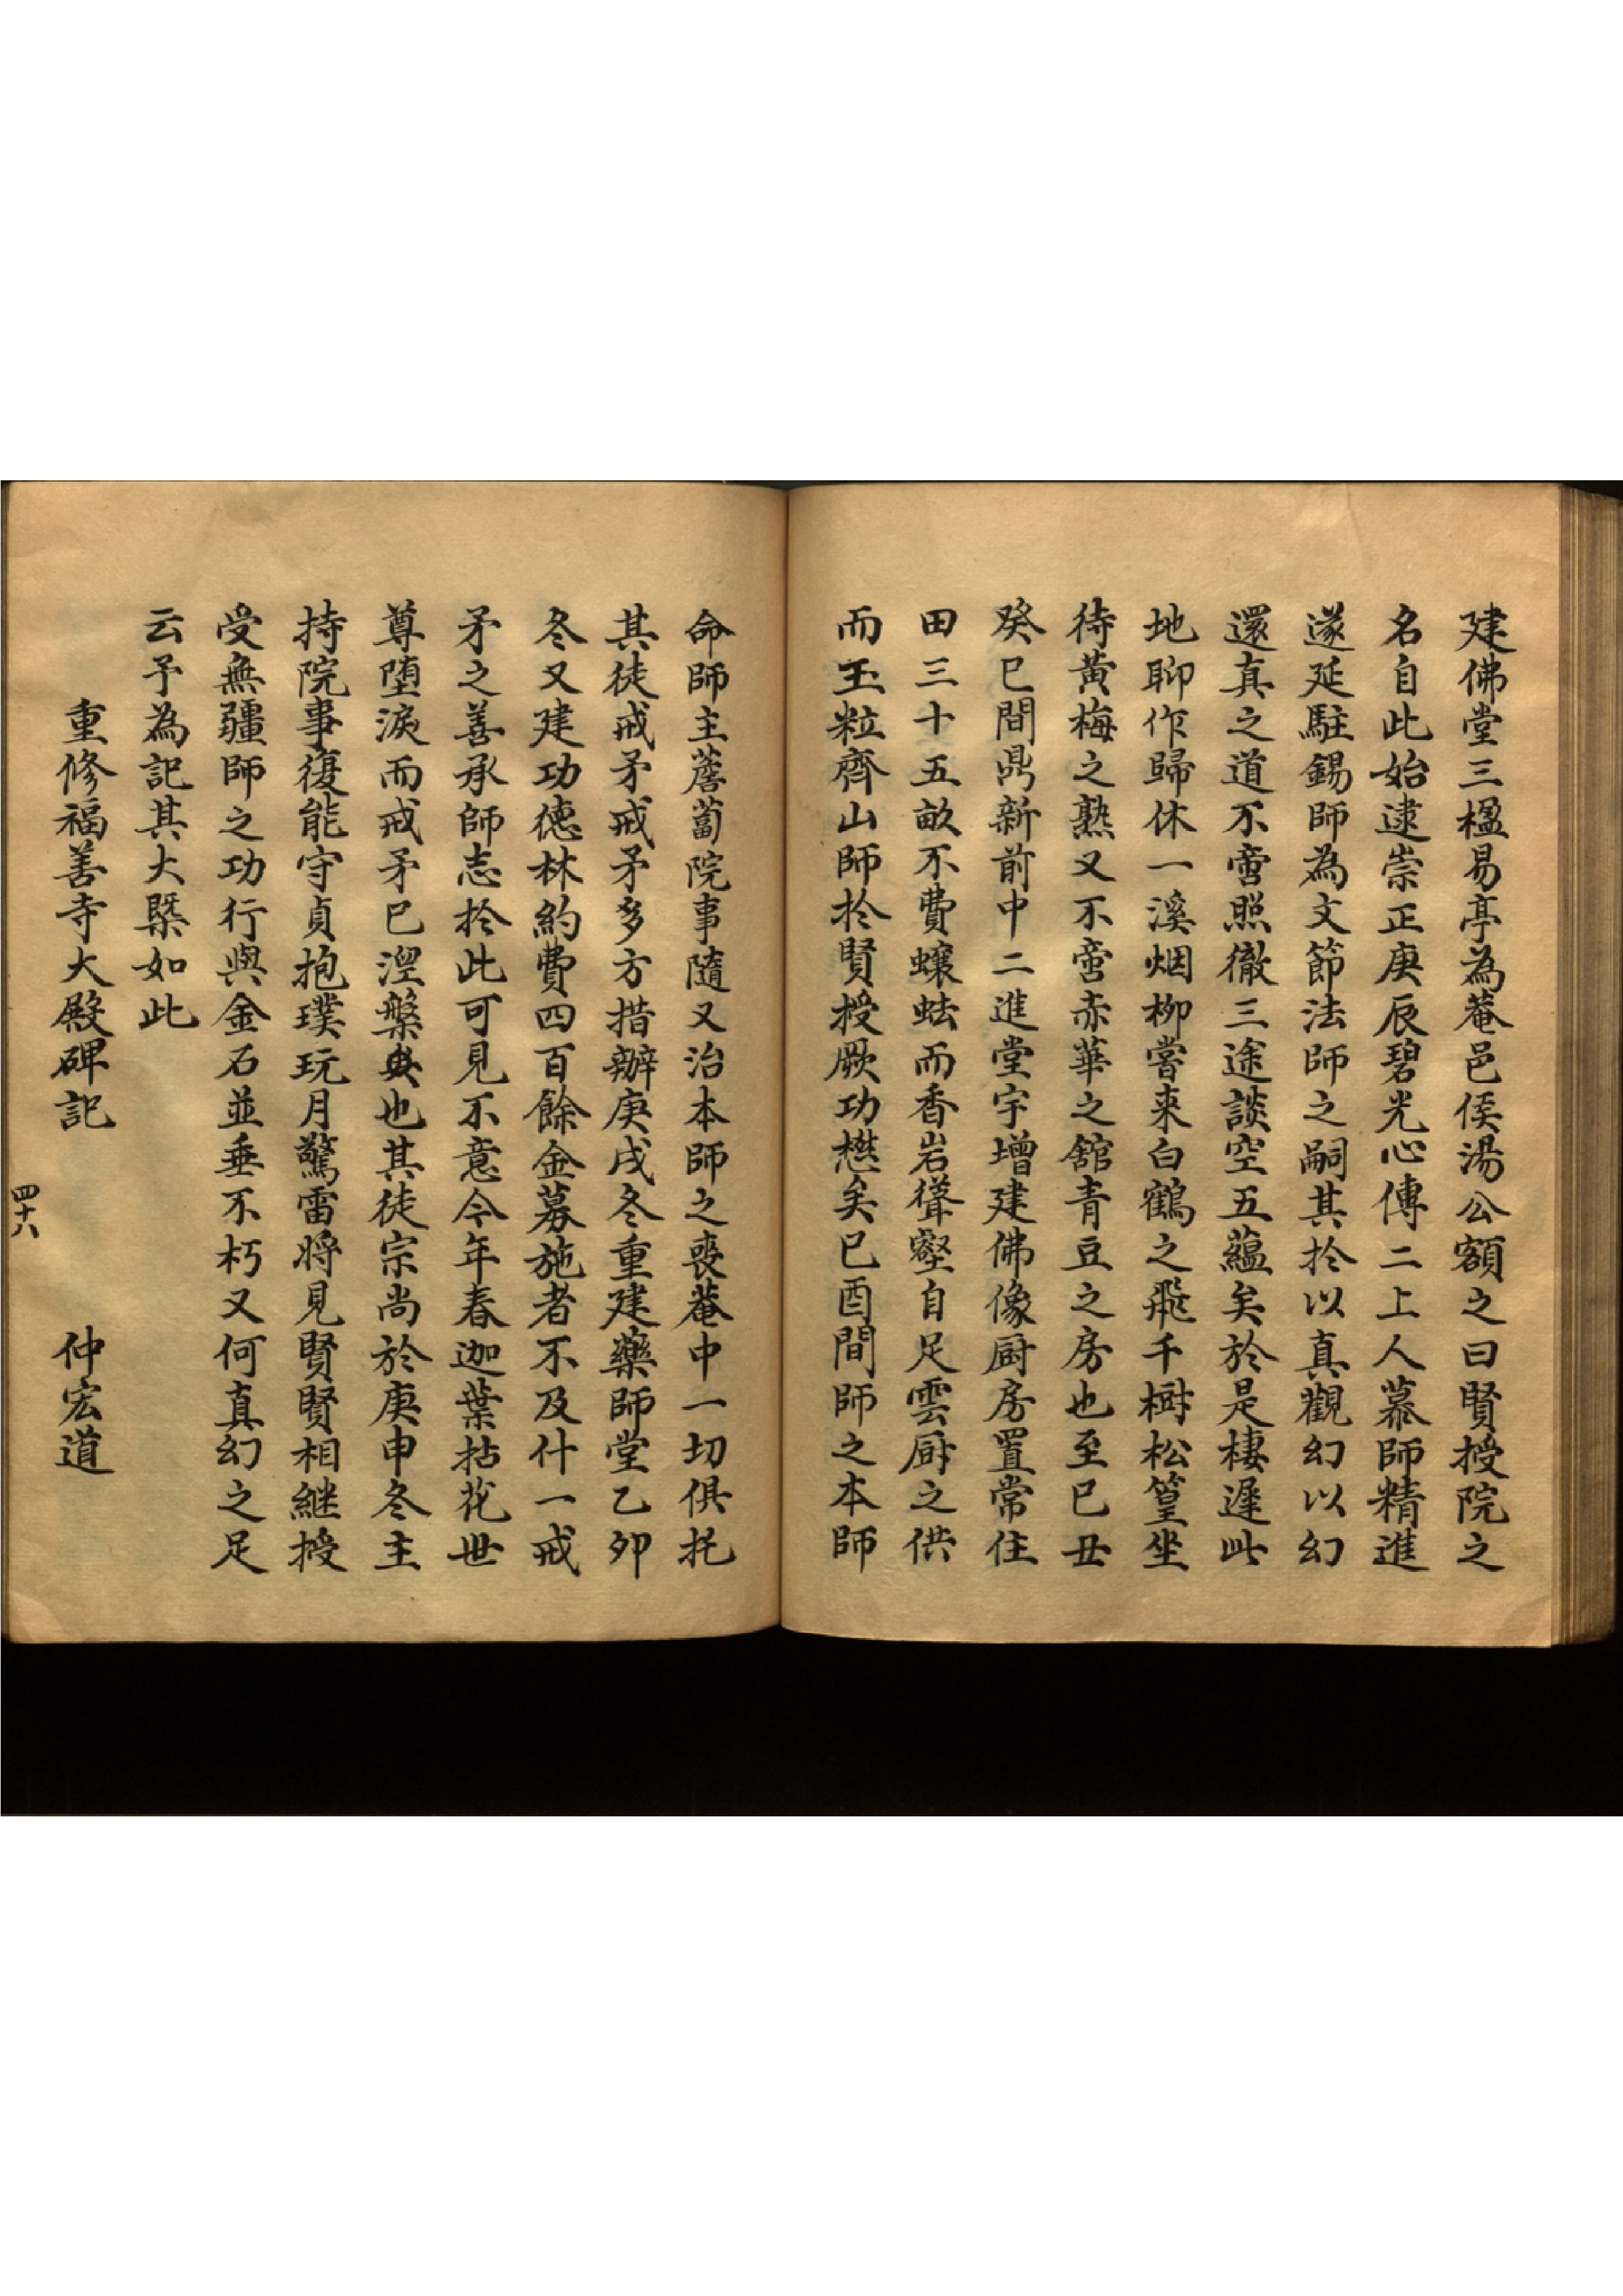 建佛堂三楹易亭為菴邑侯湯公額之曰賢授院之
名自此始逮崇正庚辰碧光心傳二上人慕師精進
遂延駐錫師為文節法師之嗣其扵以真觀幻以幻
還真之道不啻照徹三途談空五蘊矣於是棲遲此
地聊作歸休一溪烟柳嘗来白鶴之飛千樹松篁坐
待黄梅之熟又不啻赤華之舘青豆之房也至已丑
癸巳間鼎新前中二進堂宇增建佛像厨房置常住
田三十五畝不費蠰蚨而香岩聳壑自足雲厨之供
而玉粒齊山師扵賢授厥功懋矣已酉間師之本師
命師主薝蔔院事隨又治本師之喪菴中一切俱托
其徒戒矛戒矛多方措辦庚戌冬重建藥師堂乙夘
冬又建功德林約費四百餘金募施者不及什一戒
矛之善承師志扵此可見不意今年春迦葉拈花世
尊堕淚而戒矛已涅槃矣也其徒宗尚於庚申冬主
持院事復能守貞抱璞玩月驚雷将見賢賢相継授
受無疆師之功行與金石並垂不朽又何真幻之足
云予為記其大槩如此
重修福善寺大殿碑記 仲宏道
四十六